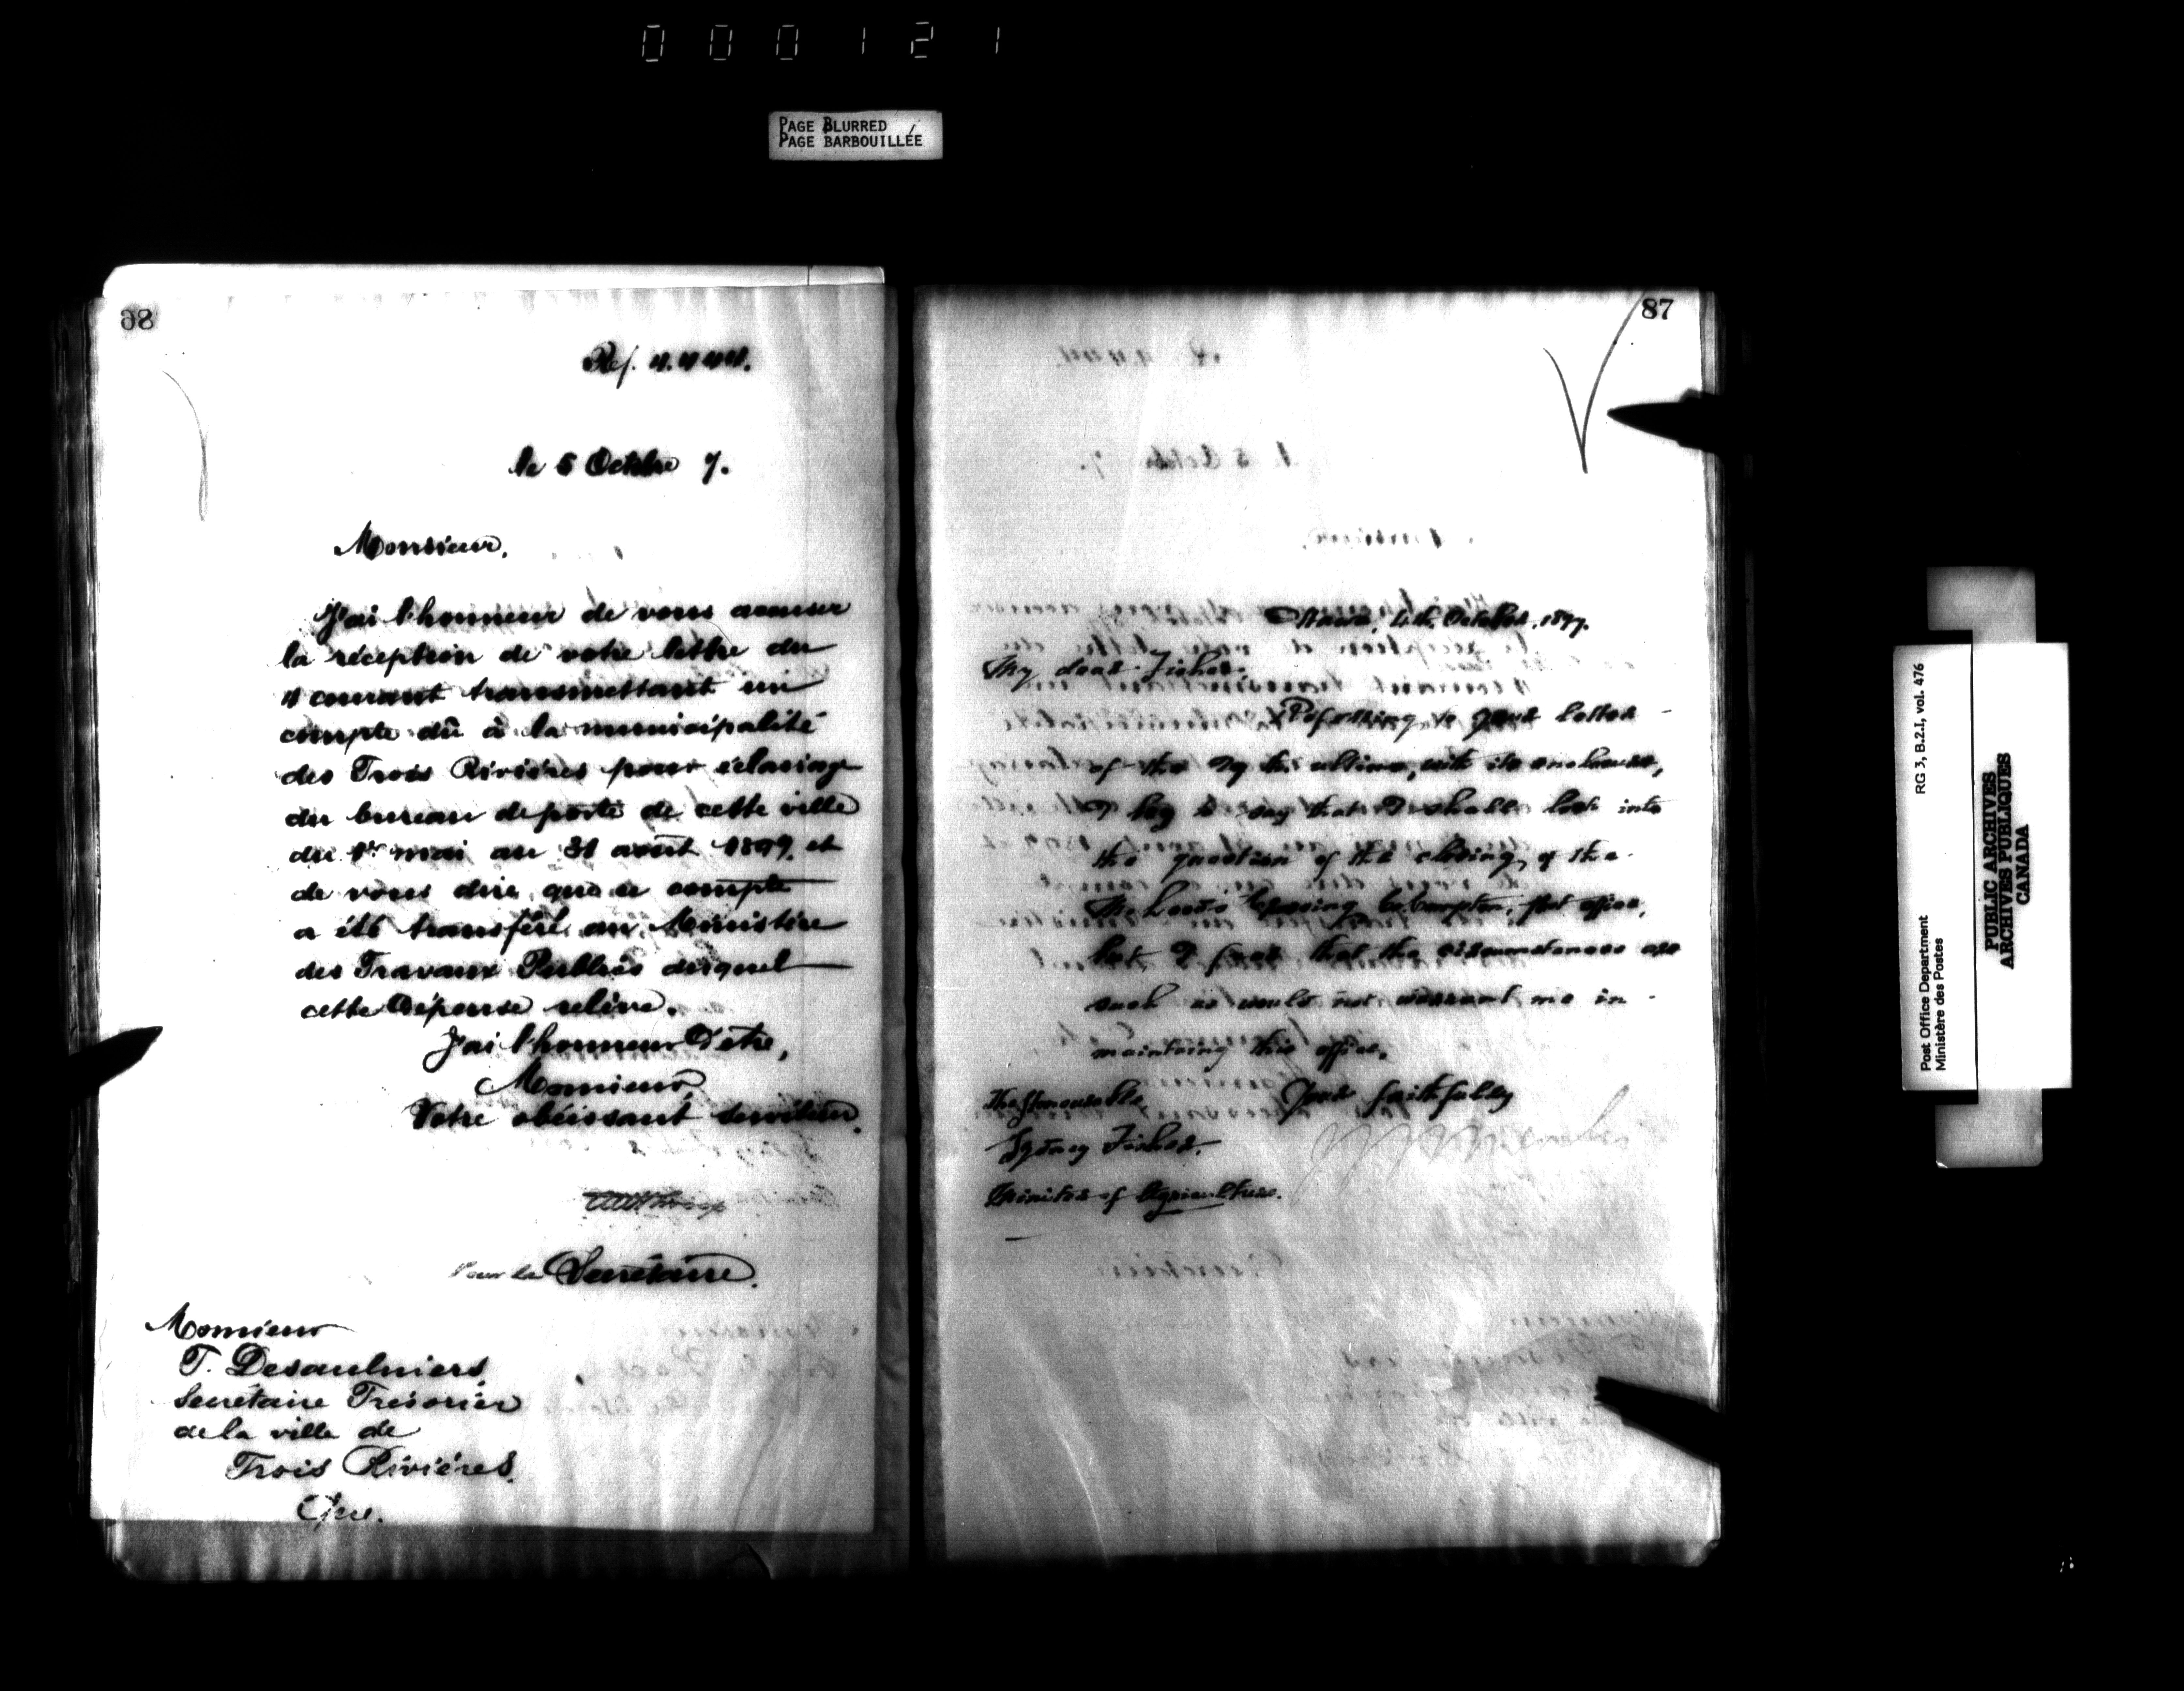 000121
PAGE BLURRED
PAGE BARBOUILLÉE
Ref.
le 5 Octobre 7.
Monsieur,
J'ai l'honneur de vous accuser
la réception de votre lettre du
courant transmettant un
compte dû à la municipalité
des Trois Rivières pour éclairage
du bureau de poste de cette ville
du 1er mai au 31 août 1897 et
de vous dire que ce compte
a été transféré au Ministère
des Travaux Publics duquel
cette dépense relève.
J'ai l'honneur d'etre,
Monsieur,
Votre obéissant serviteur.
Pour le Secrétaire.
Monsieur
T. Desaulniers,
Secrétaire Trésorier
de la ville de
Trois Rivières,
Que.
87
Ottawa, 4th. October, 1897.
My dear Fisher,
Referring to your letter
of the ultimo, with its enclosure,
I beg to say that I shall look into
the question of the closing of the
Crossing Post office,
but I fear that the circumstances are
such as would not warrant me in
maintaing this office.
Your faithfully
The Honourable
Sydney Fisher,
Minister of Agriculture.
Post Office Department
Ministère des Postes
RG 3, B.2.I, vol. 476
PUBLIC ARCHIVES
ARCHIVES PUBLIQUES
CANADA